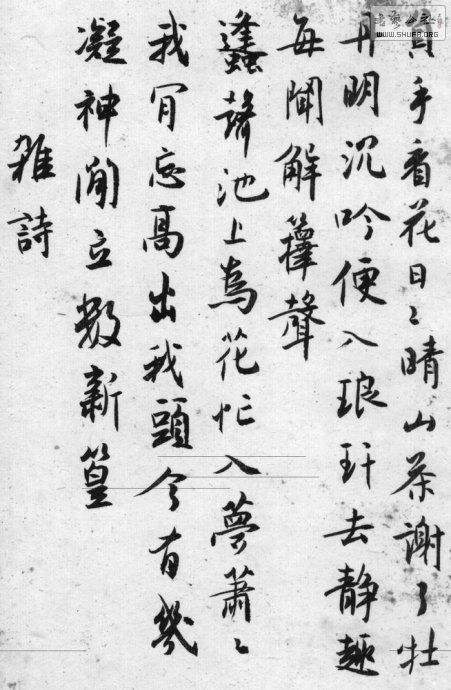 負手看花日〻晴山茶謝了牡
丹明沉吟便入琅玕去靜趣
每聞解籜聲
蠭聲池上為花忙入夢蕭〻
我肎忘高出我頭今有幾
凝神閒立數新篁
雜詩
WWW.SHUFA.ORG